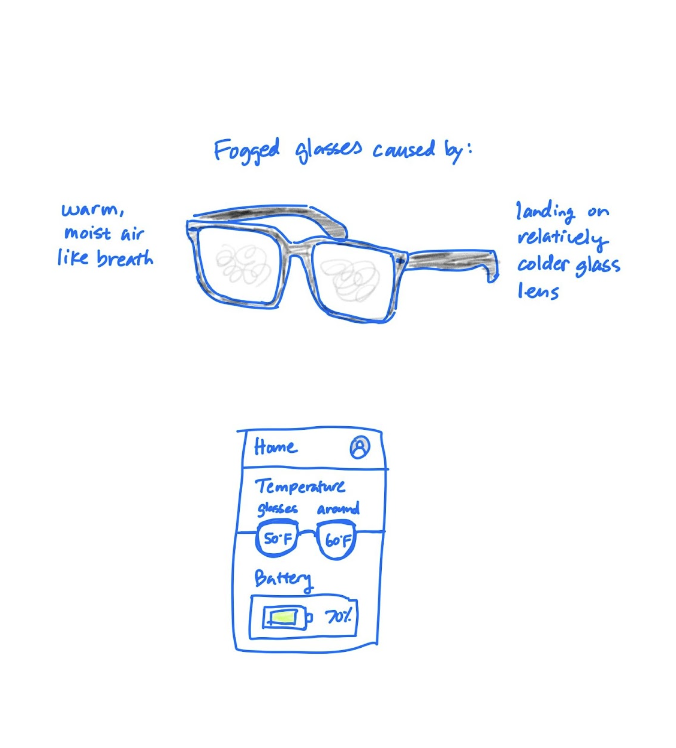 Fogged glasses caused by:
warm,
moist air
like breath
landing on
relatively
colder glass
lens
Home
Temperature
glasses around
50°F 60°F
Battery
70%